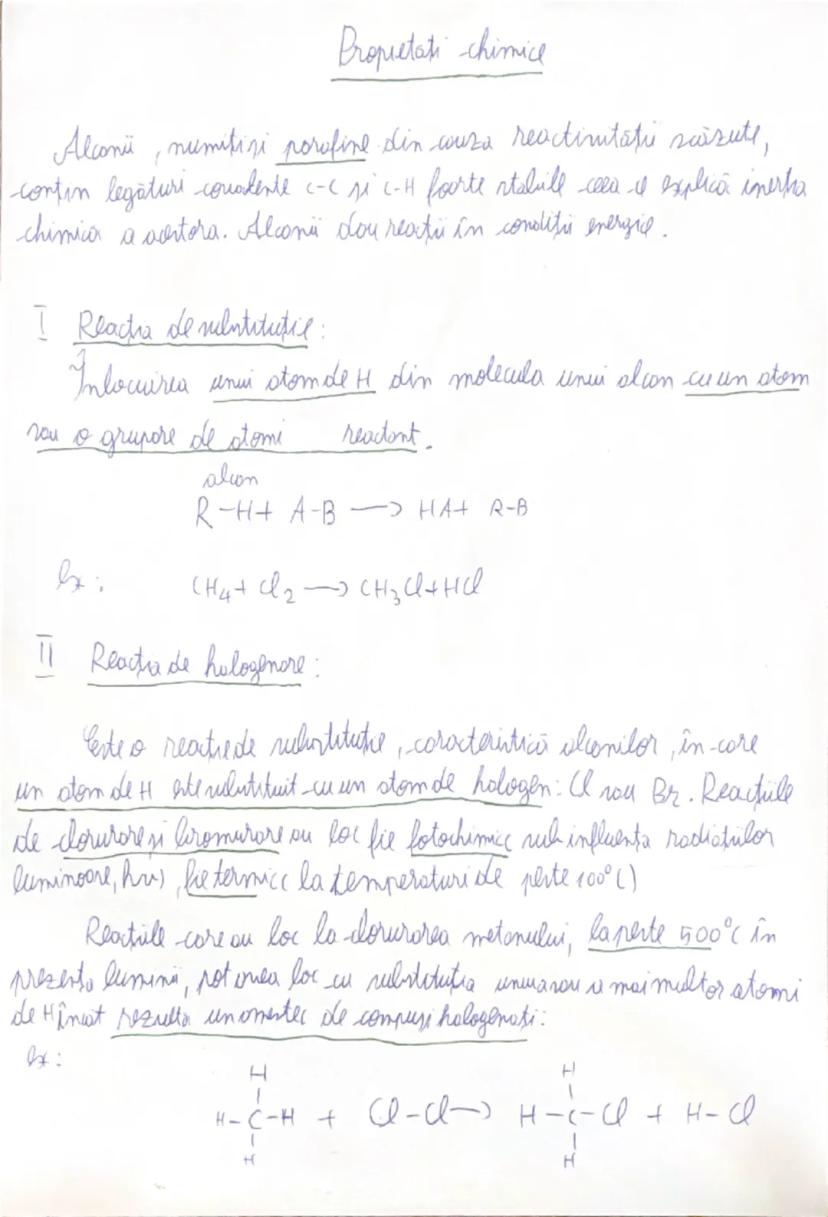 Proprietăți chimice
Alcanii, numiți și parafine din cauza reactivității scăzute,
conțin legături covalente C-C și C-H foarte stabile ceea ce explică inerția
chimică a acestora. Alcanii dau reacții în condiții energice.
I Reacția de substituție:
Înlocuirea unui atom de H din molecula unui alcan cu un atom
sau o grupare de atomi reactant.
alcan
R-H + A-B → HA + R-B
Ex: CH₄ + Cl₂ → CH₃Cl + HCl
II Reacția de halogenare:
Este o reacție de substituție, caracteristică alcanilor, în care
un atom de H este substituit cu un atom de halogen: Cl sau Br. Reacțiile
de clorurare și bromurare au loc fie fotochimic sub influența radiațiilor
luminoase, hν), fie termic (la temperaturi de peste 100°C)
Reacțiile care au loc la clorurarea metanului, la peste 500°C în
prezența luminii, pot avea loc cu substituția unuia sau a mai multor atomi
de H încât rezultă un amestec de compuși halogenați:
Ex:
H H
H-C-H + Cl-Cl → H-C-Cl + H-Cl
H H